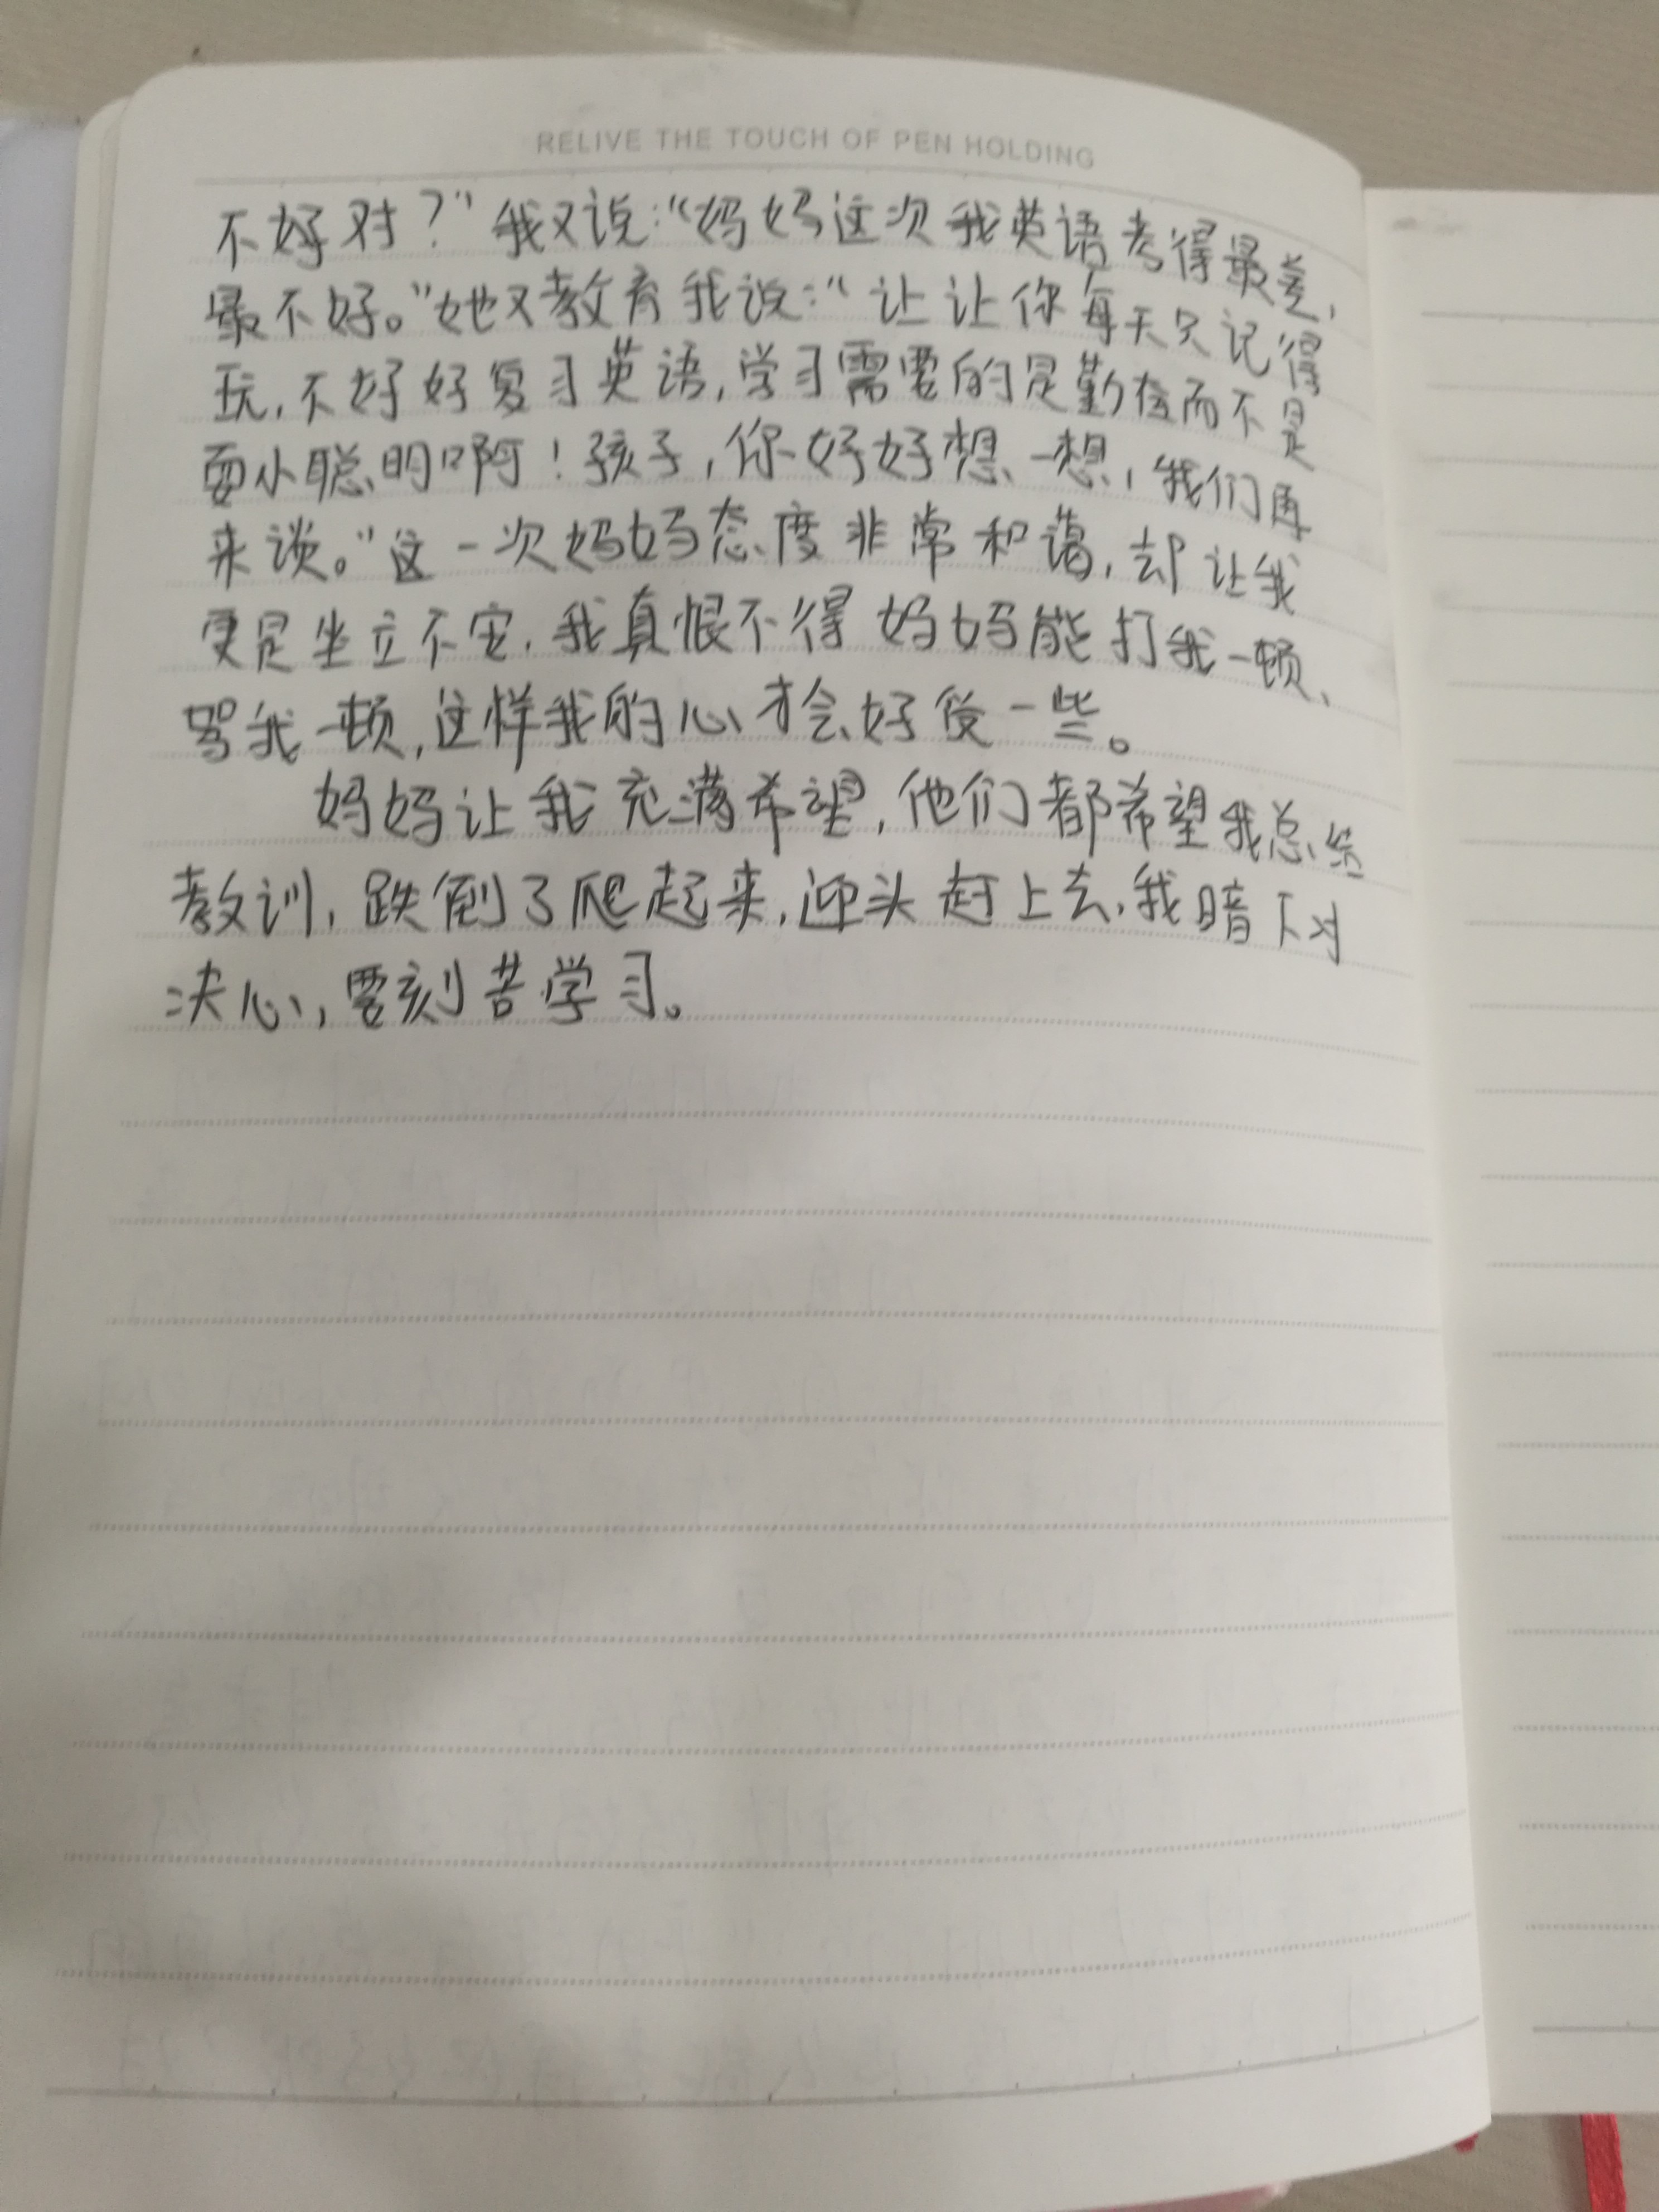 RELIVE THE TOUCH OF PEN HOLDING
不好对？”我又说：“妈妈这次我英语考得最差，
最不好。”她又教育我说：“让让你每天只记得
玩，不好好复习英语，学习需要的是勤奋而不是
耍小聪明啊！孩子，你好好想一想，我们再
来谈。”这一次妈妈态度非常和蔼，却让我
更是坐立不安，我真恨不得妈妈能打我一顿、
骂我一顿，这样我的心才会好受一些。
妈妈让我充满希望，他们都希望我总结
教训，跌倒了爬起来，迎头赶上去，我暗下对
决心，要刻苦学习。